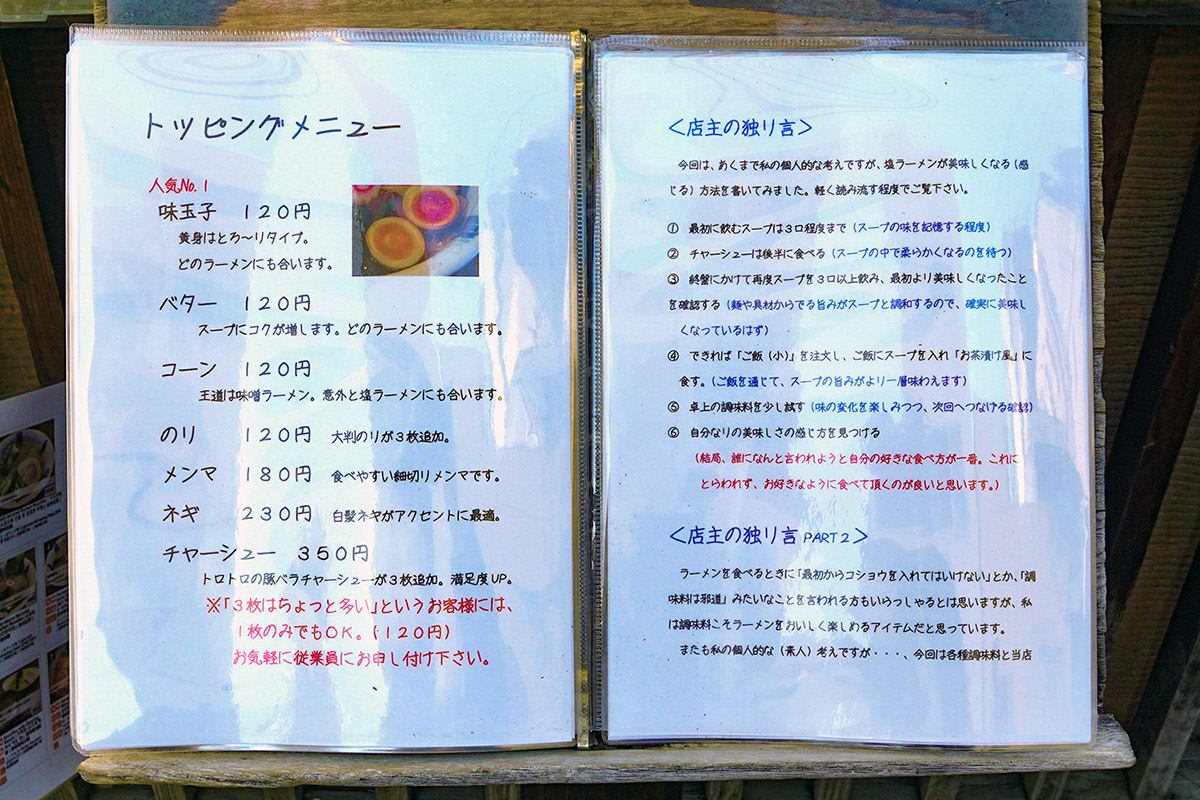 トッピングメニュー
人気No.1
味玉子 120円
黄身はとろ～りタイプ。
どのラーメンにも合います。
バター 120円
スープにコクが増します。どのラーメンにも合います。
コーン 120円
王道は味噌ラーメン。意外と塩ラーメンにも合います。
のり 120円 大判のリが3枚追加。
メンマ 180円 食べやすい細切リメンマです。
ネギ 230円 白髪ネギがアクセントに最適。
チャーシュー 350円
トロトロの豚バラチャーシューが3枚追加。満足度UP。
※「3枚はちょっと多い」というお客様には、
1枚のみでもOK。(120円)
お気軽に従業員にお申し付け下さい。
<店主の独り言>
今回は、あくまで私の個人的な考えですが、塩ラーメンが美味しくなる(感
じる)方法を書いてみました。軽く読み流す程度でご覧下さい。
① 最初に飲むスープは3口程度まで(スープの味を記憶する程度)
② チャーシューは後半に食べる(スープの中で柔らかくなるのを待つ)
③ 終盤にかけて再度スープを3口以上飲み、最初より美味しくなったこと
を確認する(麺や具材からでる旨みがスープと調和するので、確実に美味し
くなっているはず)
④ できれば「ご飯(小)」を注文し、ご飯にスープを入れ「お茶漬け風」に
食す。(ご飯を通じて、スープの旨みがより一層味わえます)
⑤ 卓上の調味料を少し試す(味の変化を楽しみつつ、次回へつなける確認)
⑥ 自分なりの美味しさの感じ方を見つける
(結局、誰になんと言われようと自分の好きな食べ方が一番。これに
とらわれず、お好きなように食べて頂くのが良いと思います。)
<店主の独り言 PART2>
ラーメンを食べるときに「最初からコショウを入れてはいけない」とか、「調
味料は邪道」みたいなことを言われる方もいらっしゃるとは思いますが、私
は調味料こそラーメンをおいしく楽しめるアイテムだと思っています。
またも私の個人的な(素人)考えですが・・・、今回は各種調味料と当店